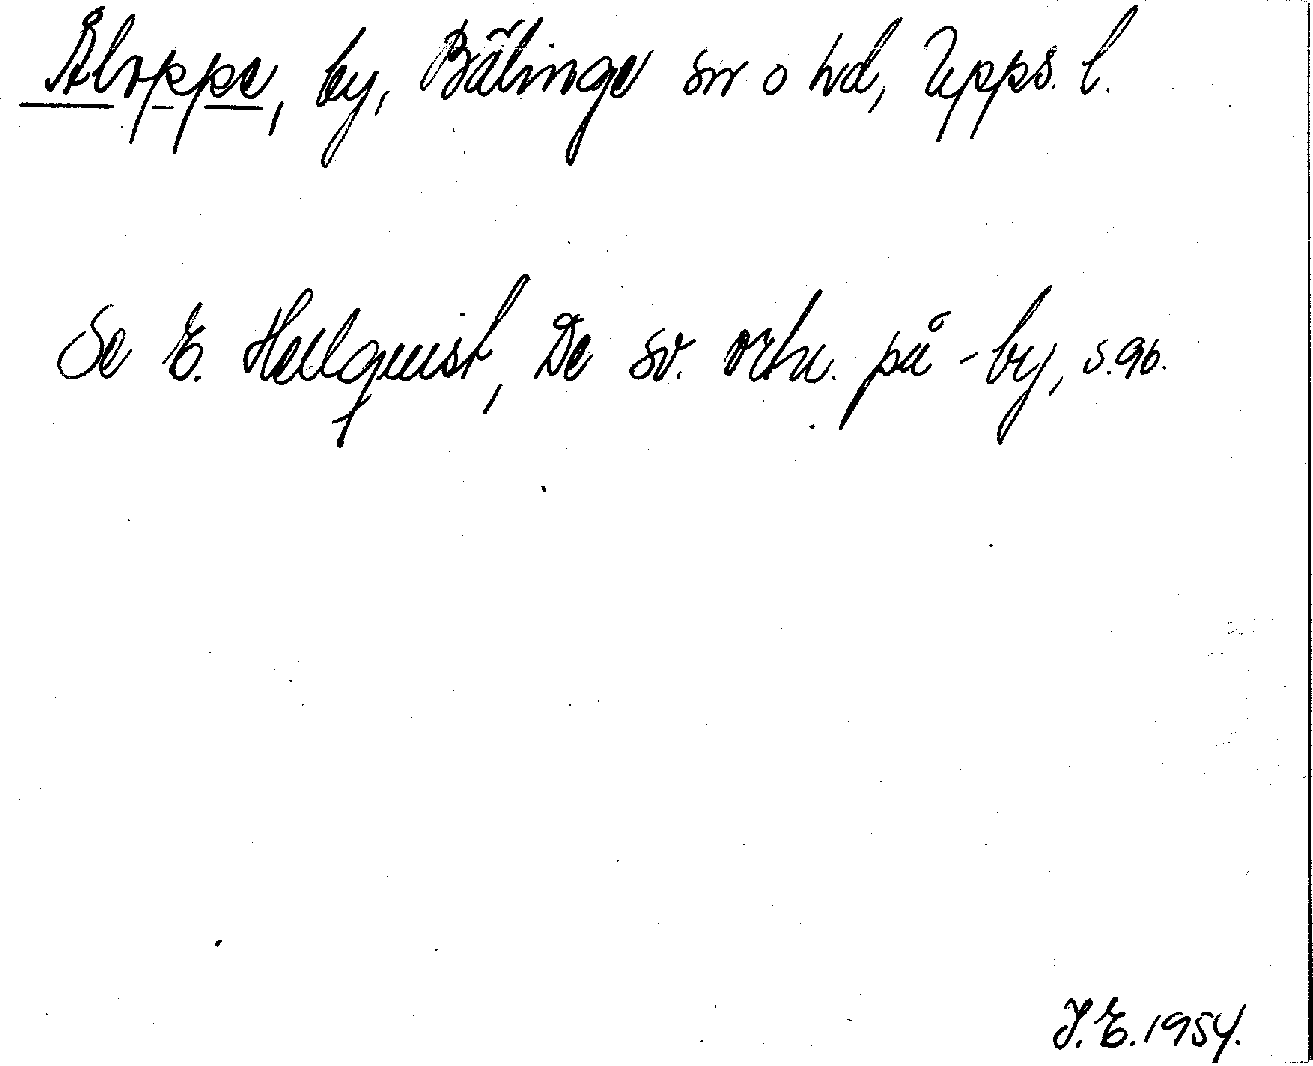 Åloppe, by, Bälinge sn o hd, Upps. l.
Se E. Hellquist, De sv. ortn. på -by, s. 90.
J. E. 1954.